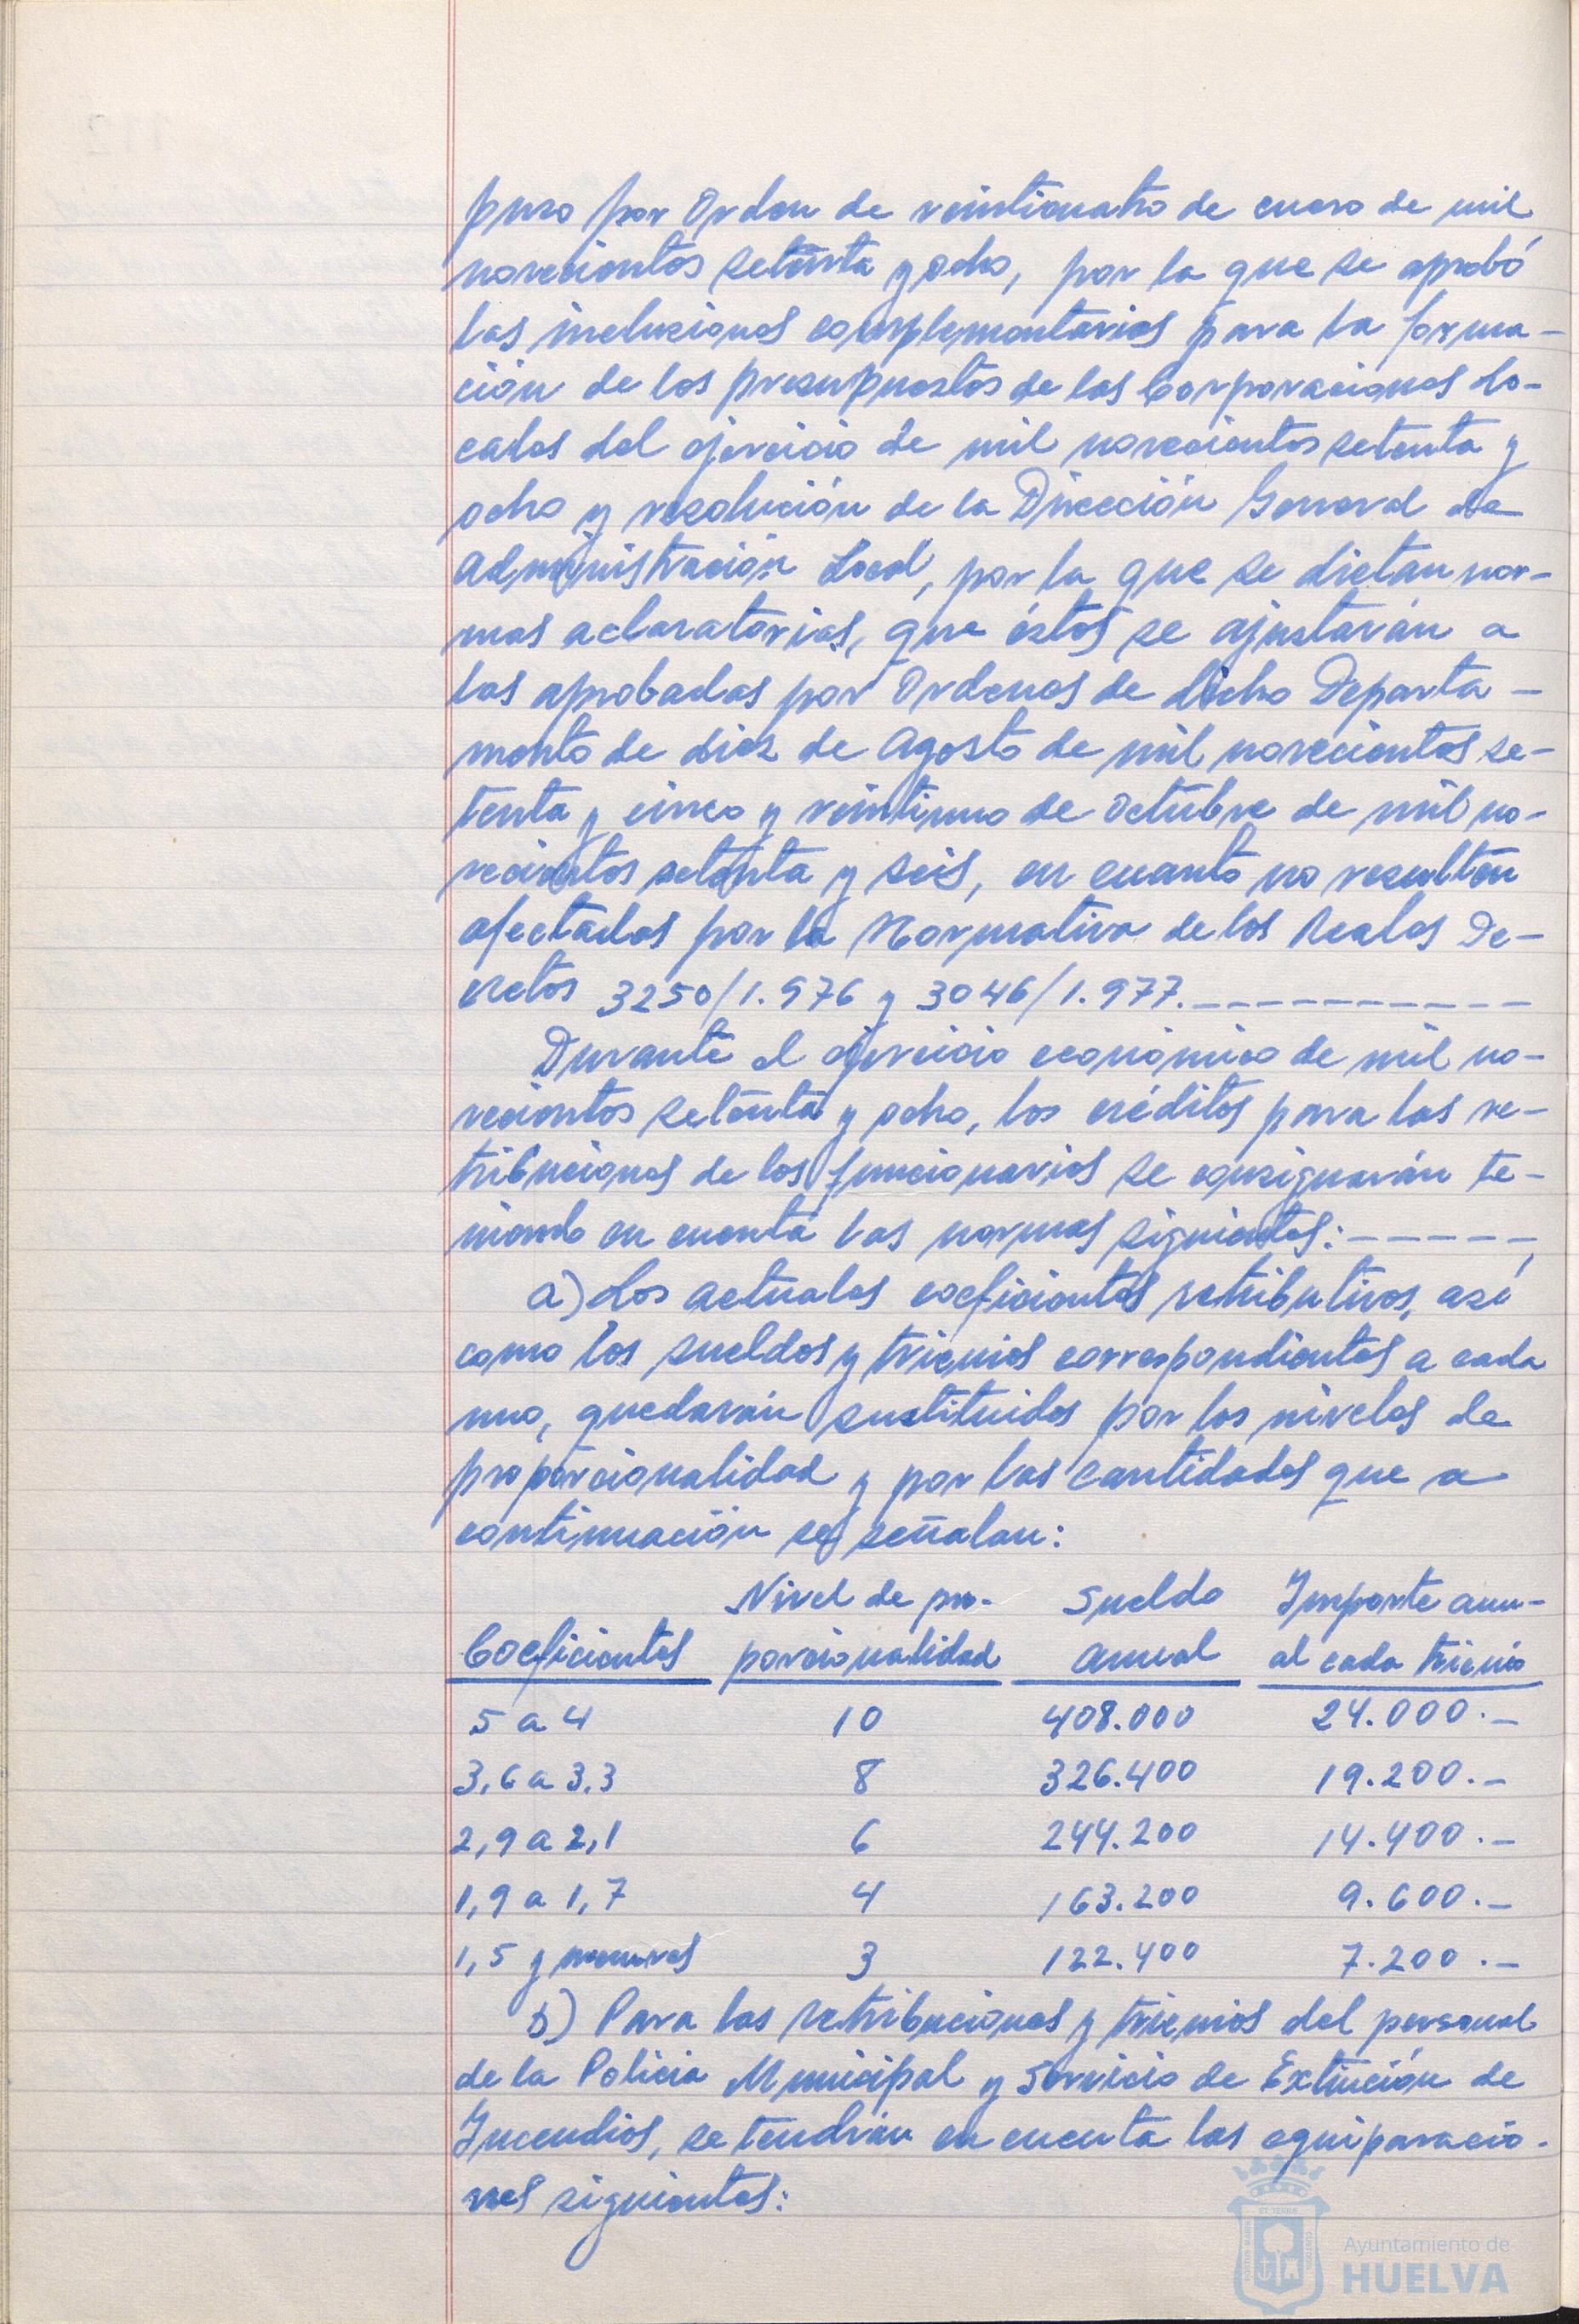 puso por Orden de veinticuatro de enero de mil
novecientos setenta y ocho, por la que se aprobó
las inclusiones complementarias para la forma-
ción de los presupuestos de las Corporaciones Lo-
cales del ejercicio de mil novecientos setenta y
ocho y resolución de la Dirección General de
Administración Local, por la que se dictan nor-
mas aclaratorias, que éstos se ajustarán a
las aprobadas por Ordenes de dicho Departa-
mento de diez de Agosto de mil novecientos se-
tenta y cinco y veintiuno de Octubre de mil no-
vecientos setenta y seis, en cuanto no resulten
afectadas por la Normativa de los Reales De-
cretos 3250/1.976 y 3046/1.977.----------
Durante el ejercicio económico de mil no-
vecientos setenta y ocho, los créditos para las re-
tribuciones de los funcionarios se consignarán te-
niendo en cuenta las normas siguientes:-----
a) Los actuales coeficientes retributivos, así
como los sueldos y trienios correspondientes a cada
uno, quedarán sustituidos por los niveles de
proporcionalidad y por las cantidades que a
continuación se señalan:
Nivel de pro- Sueldo Importe anu-
Coeficientes porcionalidad anual al cada trienio
5 a 4 10 408.000 24.000.-
3,6 a 3,3 8 326.400 19.200.-
2,9 a 2,1 6 244.200 14.400.-
1,9 a 1,7 4 163.200 9.600.-
1,5 y menores 3 122.400 7.200.-
b) Para las retribuciones y trienios del personal
de la Policia Municipal y Servicio de Extinción de
Incendios, se tendrán en cuenta las equiparacio-
nes siguientes:
Ayuntamiento de
HUELVA